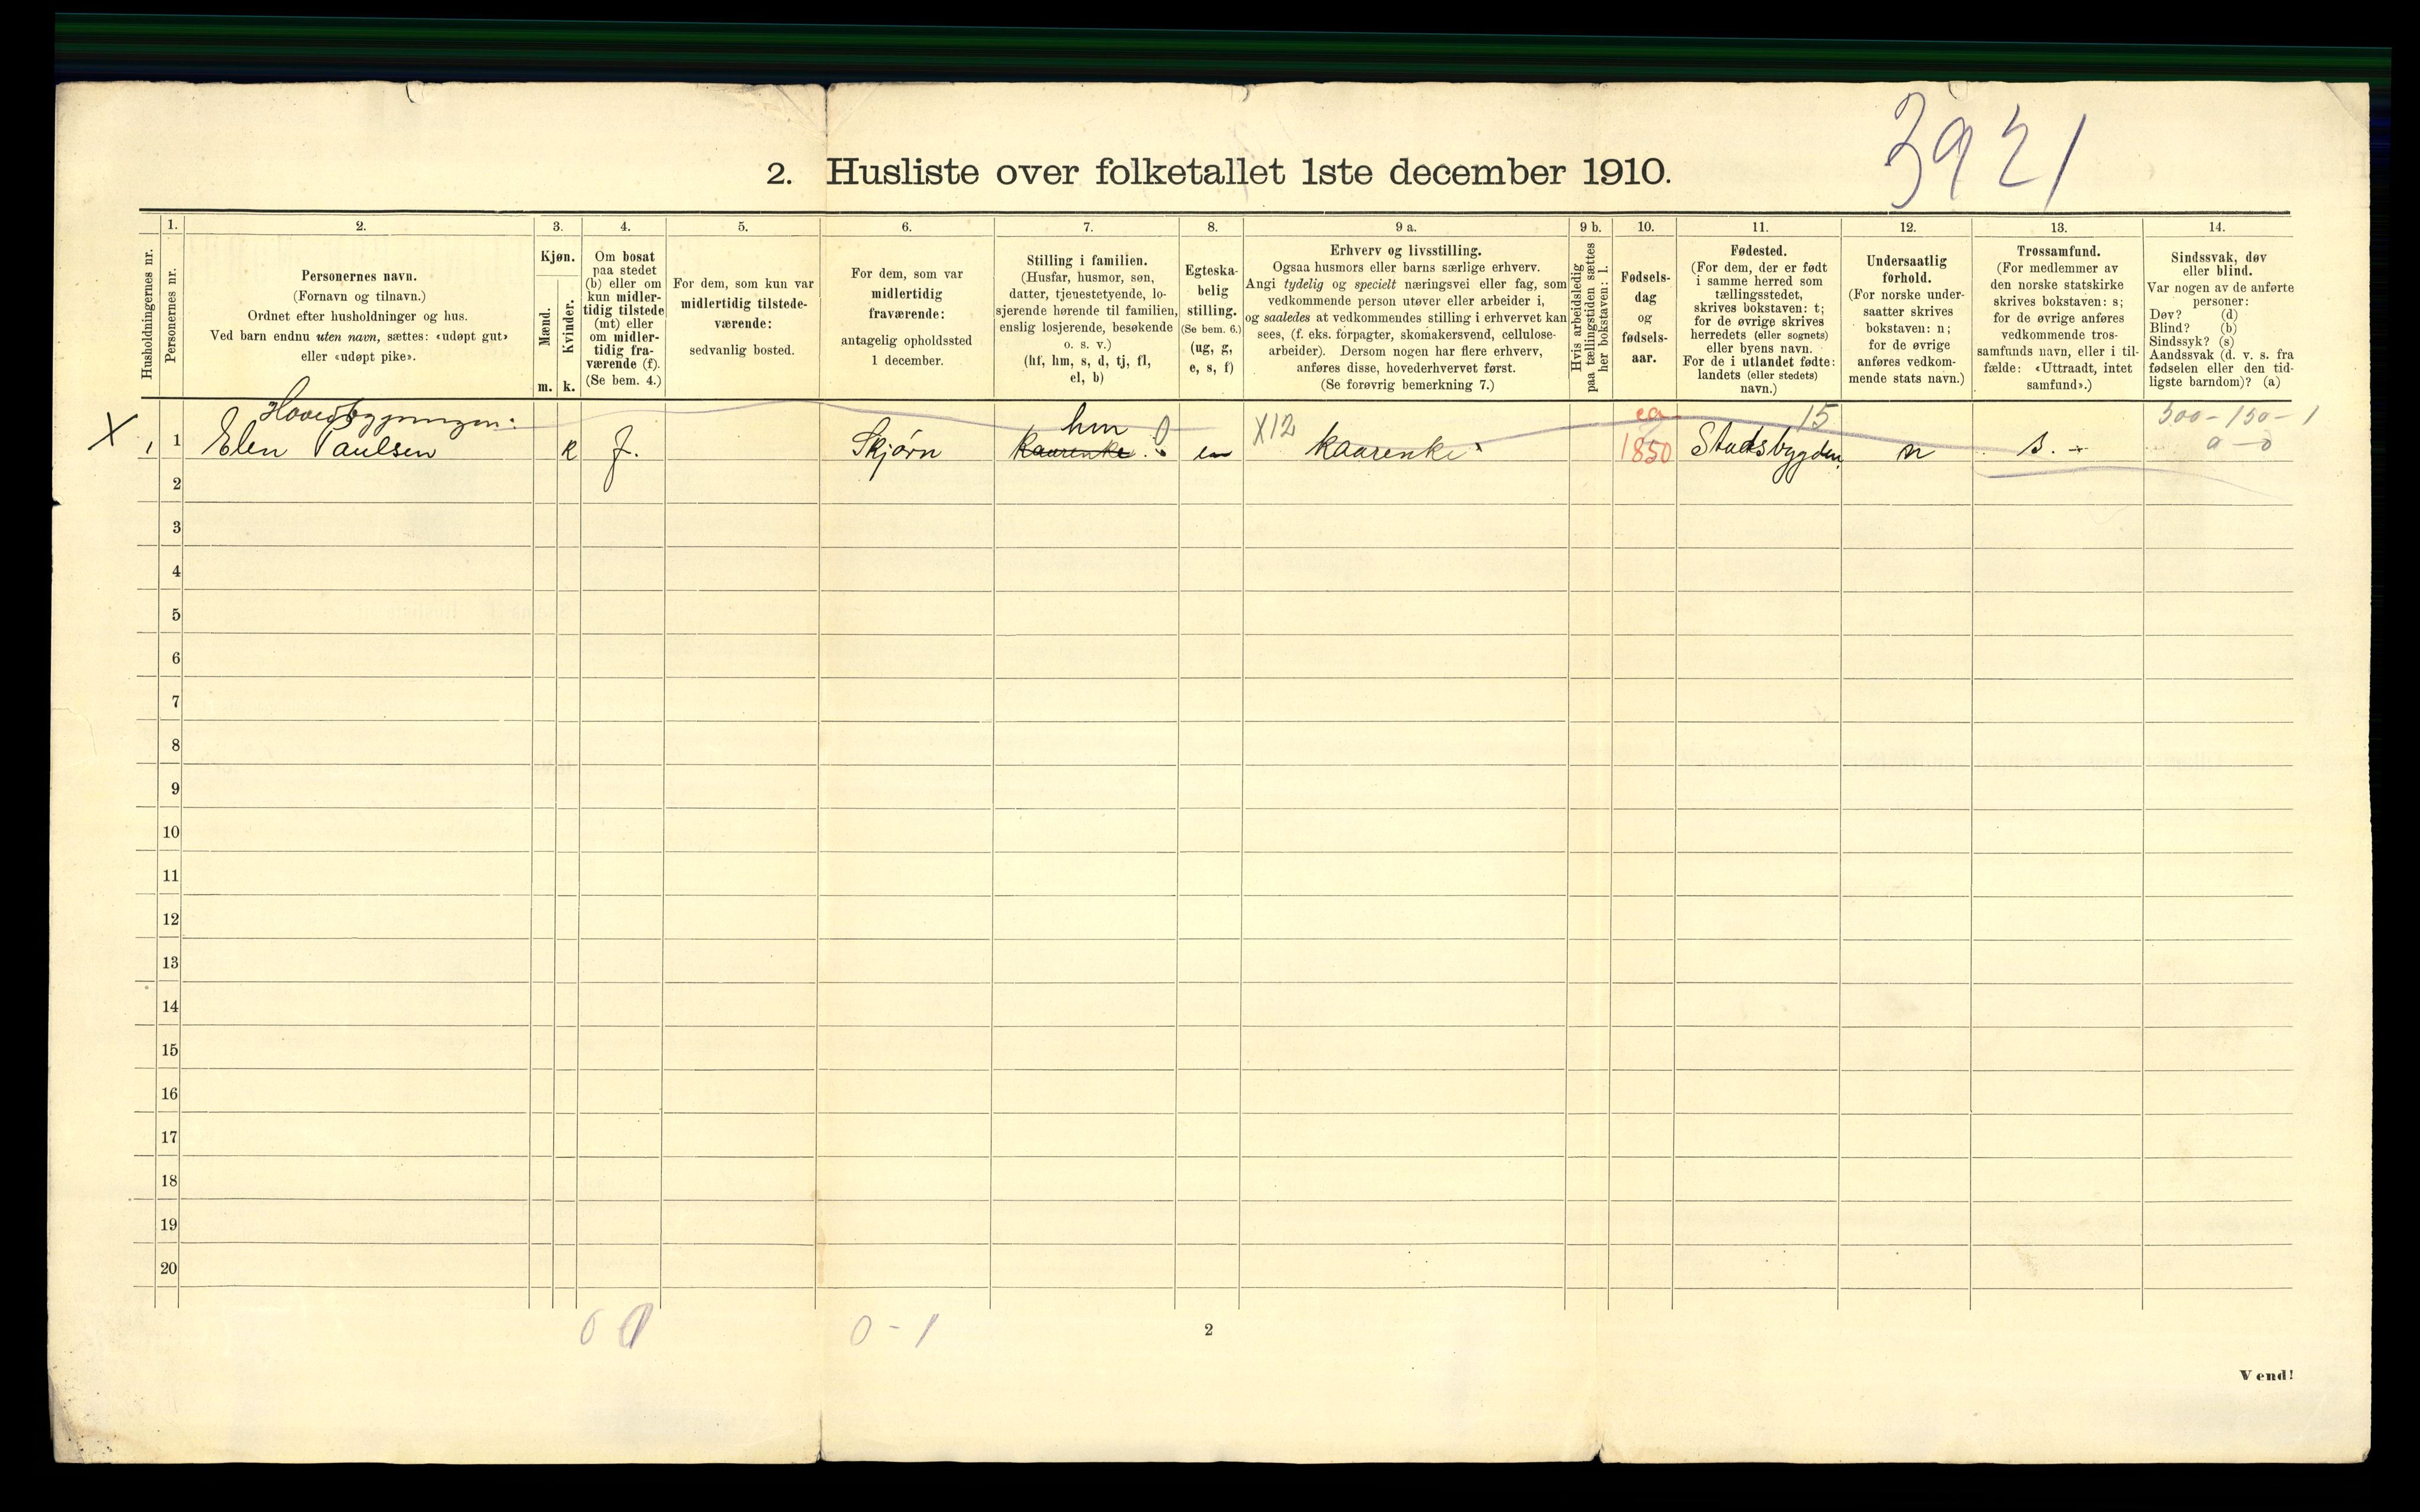 3921
2. Husliste over folketallet 1ste december 1910.
Husholdningernes nr.
1.
Personernes nr.
2.
Personernes navn.
(Fornavn og tilnavn.)
Ordnet efter husholdninger og hus.
Ved barn endnu uten navn, sættes: «udøpt gut»
eller «udøpt pike».
3.
Kjøn.
Mænd.
Kvinder.
m. k.
4.
Om bosat
paa stedet
(b) eller om
kun midler-
tidig tilstede
(mt) eller
om midler-
tidig fra-
værende (f).
(Se bem. 4.)
5.
For dem, som kun var
midlertidig tilstede-
værende:
sedvanlig bosted.
6.
For dem, som var
midlertidig
fraværende:
antagelig opholdssted
1 december.
7.
Stilling i familien.
(Husfar, husmor, søn,
datter, tjenestetyende, lo-
sjerende hørende til familien,
enslig losjerende, besøkende
o. s. v.)
(hf, hm, s, d, tj, fl,
el, b)
8.
Egteska-
belig
stilling.
(Se bem. 6.)
(ug, g,
e, s, f)
9 a.
Erhverv og livsstilling.
Ogsaa husmors eller barns særlige erhverv.
Angi tydelig og specielt næringsvei eller fag, som
vedkommende person utøver eller arbeider i,
og saaledes at vedkommendes stilling i erhvervet kan
sees, (f. eks. forpagter, skomakersvend, cellulose-
arbeider). Dersom nogen har flere erhverv,
anføres disse, hovederhvervet først.
(Se forøvrig bemerkning 7.)
9 b.
Hvis arbeidsledig
paa tællingstiden sættes
her bokstaven: l.
10.
Fødsels-
dag
og
fødsels-
aar.
11.
Fødested.
(For dem, der er født
i samme herred som
tællingsstedet,
skrives bokstaven: t;
for de øvrige skrives
herredets (eller sognets)
eller byens navn.
For de i utlandet fødte:
landets (eller stedets)
navn.)
12.
Undersaatlig
forhold.
(For norske under-
saatter skrives
bokstaven: n;
for de øvrige
anføres vedkom-
mende stats navn.)
13.
Trossamfund.
(For medlemmer av
den norske statskirke
skrives bokstaven: s;
for de øvrige anføres
vedkommende tros-
samfunds navn, eller i til-
fælde: «Uttraadt, intet
samfund».)
14.
Sindssvak, døv
eller blind.
Var nogen av de anførte
personer:
Døv? (d)
Blind? (b)
Sindssyk? (s)
Aandssvak (d. v. s. fra
fødselen eller den tid-
ligste barndom)? (a)
Hovedbygningen: hm X12 ca 15 300-150-1
X 1 1 Elen Paulsen k f. Skjørn kaarenke. 0 em kaarenke 1850 Stadsbygden n s. 0-0
2
3
4
5
6
7
8
9
10
11
12
13
14
15
16
17
18
19
20
0-1
2
Vend!